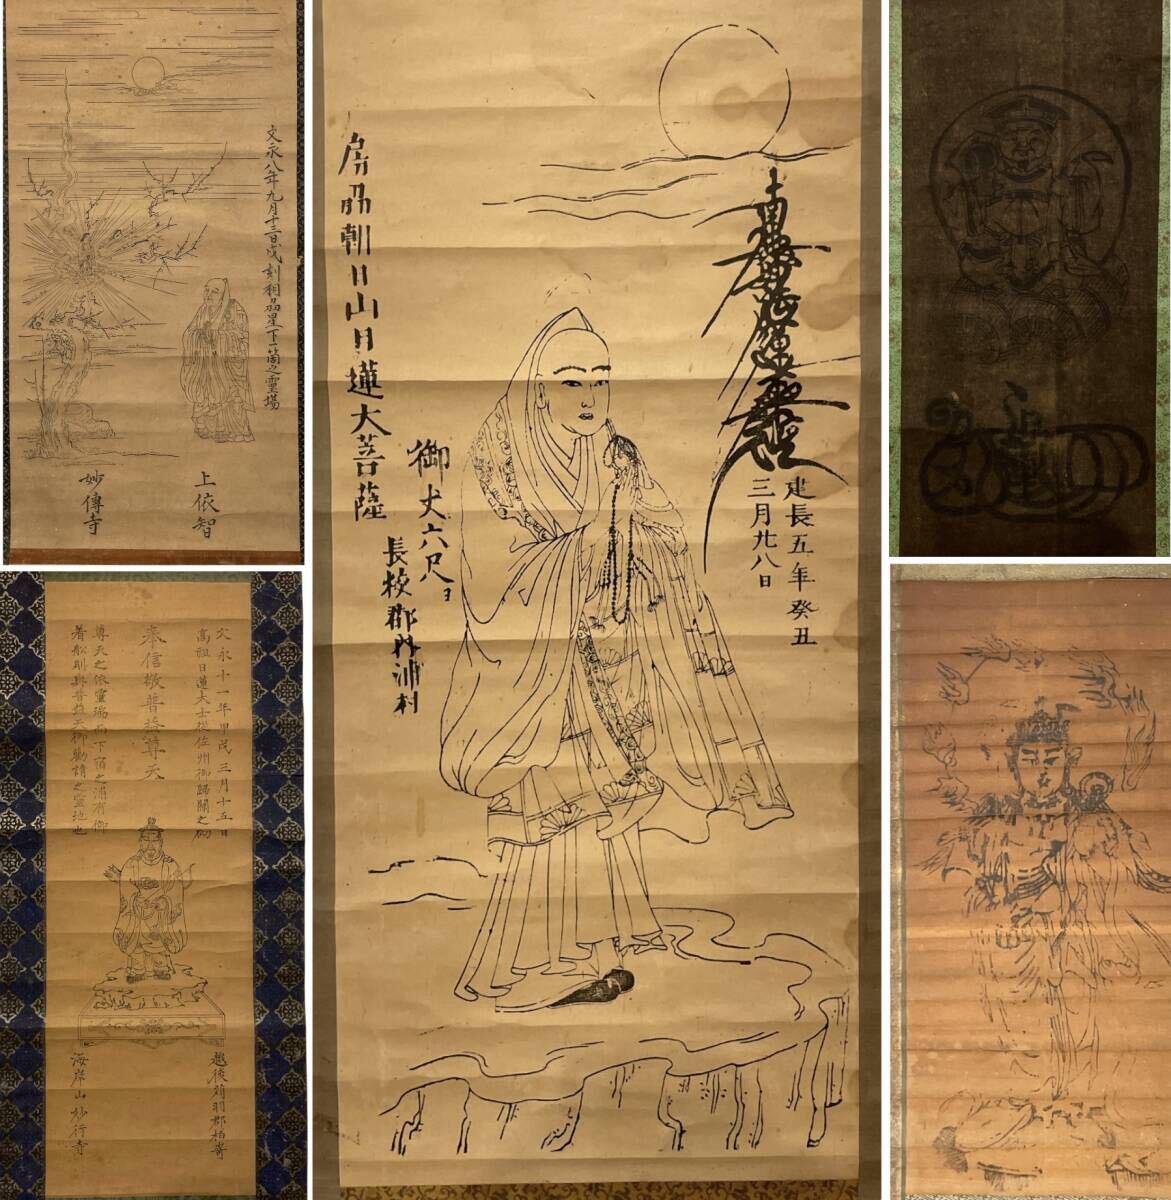 文永八年九月十三日戌刻相刕星下一箇之霊場
上依智
妙傳寺
南無妙法蓮華経
建長五年癸丑
三月廿八日
房州朝日山日蓮大菩薩
御丈六尺八寸
長狭郡内浦村
文永十一年甲戌三月十五日
高祖日蓮大士從佐州御歸關之砌
奉信敬普益尊天
尊天之依霊瑞而下宿之浦有御
着船則與普益天御勧請之霊地也
越後苅羽郡柏崎
海岸山妙行寺